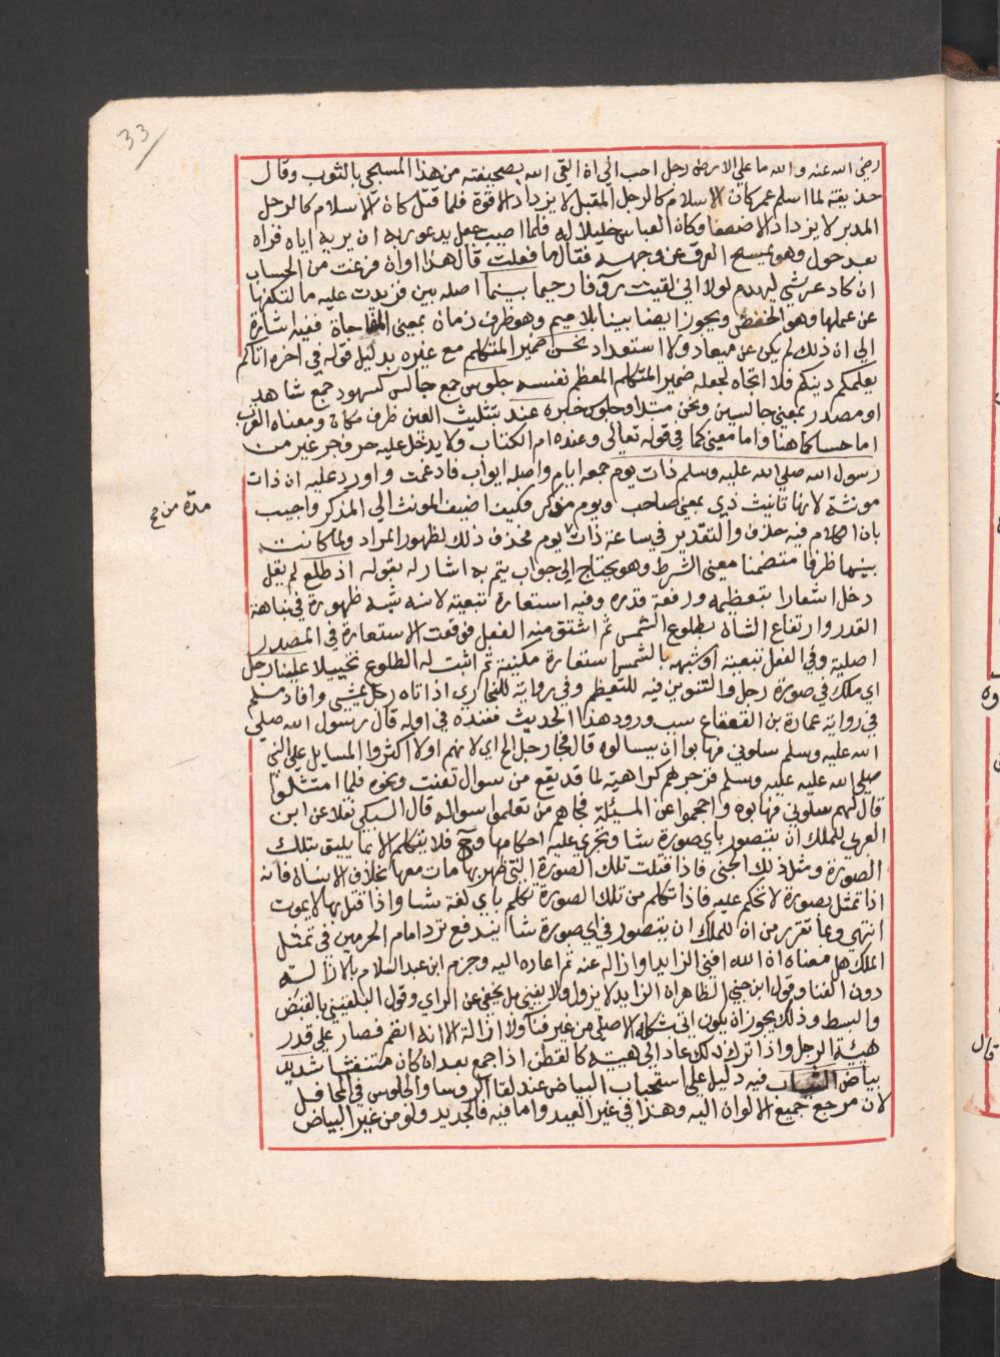 33
رضي الله عنه والله ما علي الارض رجل احب الي ان القي الله بصحيفته من هذا المسجي بالثوب وقال
حذيفة لما اسلم عمر كان الاسلام كالرجل المقبل لا يزداد الا قوة فلما قتل كان الاسلام كالرجل
المدبر لا يزداد الا ضعفا وكان العباس خليلا له فلما اصيب جعل يدعو ربه ان يريه اياه فراه
بعد حول وهو يمسح العرق عن وجهه فقال ما فعلت قال هذا اوان فرغت من الحساب
ان كاد عرشي ليهدم لولا اني لقيت روفا رحيما بينما اصله بين فزيدت عليه ما لتكفها
عن عملها وهو الخفض ويجوز ايضا بينا بلا ميم وهو ظرف زمان بمعني المفاجاة ففيه اشارة
الي ان ذلك لم يكن عن ميعاد ولا استعداد نحن ضمير المتكلم مع غيره بدليل قوله في اخره اتاكم
يعلمكم دينكم فلا اتجاه لجعله ضمير المتكلم المعظم نفسه جلوس جمع جالس كسهود جمع شاهد
او مصدر بمعني جالسين ونحن مبتدا وجلوس خبره عند بتثليث العين ظرف مكان ومعناه القرب
اما حسا كما هنا واما معني كما في قوله تعالي وعنده ام الكتاب ولا يدخل عليه حرف جر غير من
رسول الله صلي الله عليه وسلم ذات يوم جمعه ايام واصله ايوام فادغمت واورد عليه ان ذات
مونثة لانها تانيث ذي بمعني صاحب ويوم مذكر فكيف اضيف المونث الي المذكر واجيب
مدة من صح
بان الكلام فيه حذف والتقدير في ساعة ذات يوم فحذف ذلك لظهور المراد ولما كانت
بينما ظرفا متضمنا معني الشرط وهو يحتاج الي جواب يتم به اشار له بقوله اذ طلع لم يقل
دخل اشعارا بتعظيمه ورفعة قدره وفيه استعارة تبعية لانه شبه ظهوره في نباهة
القدر وارتفاع الشان بطلوع الشمس ثم اشتق منه الفعل فوقعت الاستعارة في المصدر
اصلية وفي الفعل تبعية او شبهه بالشمس استعارة مكنية ثم اثبت له الطلوع تخييلا علينا رجل
اي ملك في صورة رجل والتنوين فيه للتعظيم وفي رواية للبخاري اذ اتاه رجل يمشي وافاد مسلم
في رواية عمارة بن القعقاع سبب ورود هذا الحديث فعنده في اوله قال رسول الله صلي
الله عليه وسلم سلوني فهابوا ان يسالوه قال فجا رجل الخ اي لانهم اولا اكثروا المسايل علي النبي
صلي الله عليه عليه وسلم فزجرهم كراهية لما قد يقع من سوال تعنت ونحوه فلما امتثلوا
قال لهم سلوني فهابوه واحجموا عن المسيلة فجاهم من تعلموا سواله قال السبكي نقلا عن ابن
العربي للملك ان يتصور باي صورة شا وتجري عليه احكامها وح فلا يتكلم الا بما يليق بتلك
الصورة ومثل ذلك الجني فاذا قتلت تلك الصورة التي ظهر بها مات معها بخلاف الانسان فانه
اذا تمثل بصورة لا تحكم عليه فاذا تكلم من تلك الصورة تكلم باي لغة شا واذا قتل بها لا يموت
انتهي وبما تقرر من ان للملك ان يتصور في اي صورة شا اندفع تردد امام الحرمين في تمثل
الملك هل معناه ان الله افني الزايد او ازاله عنه ثم اعاده اليه وجزم ابن عبد السلام بالازالة
دون الفنا وقول ابن جني الظاهر ان الزايد لا يزول ولا يفني بل يخفي عن الراي وقول البلقيني بالقبض
والبسط وذلك يجوز ان يكون اتي شكله الاصلي من غير فنا ولا ازالة الا انه انضم فصار علي قدر
هيئة الرجل واذا ترك ذلك عاد الي هيئته كالقطن اذا جمع بعد ان كان منتفشا شديد
بياض الثياب فيه دليل علي استحباب البياض عند لقا الروسا والجلوس في المحافل
لان مرجع جميع الالوان اليه وهذا في غير العيد واما فيه فالجديد ولو من غير البياض